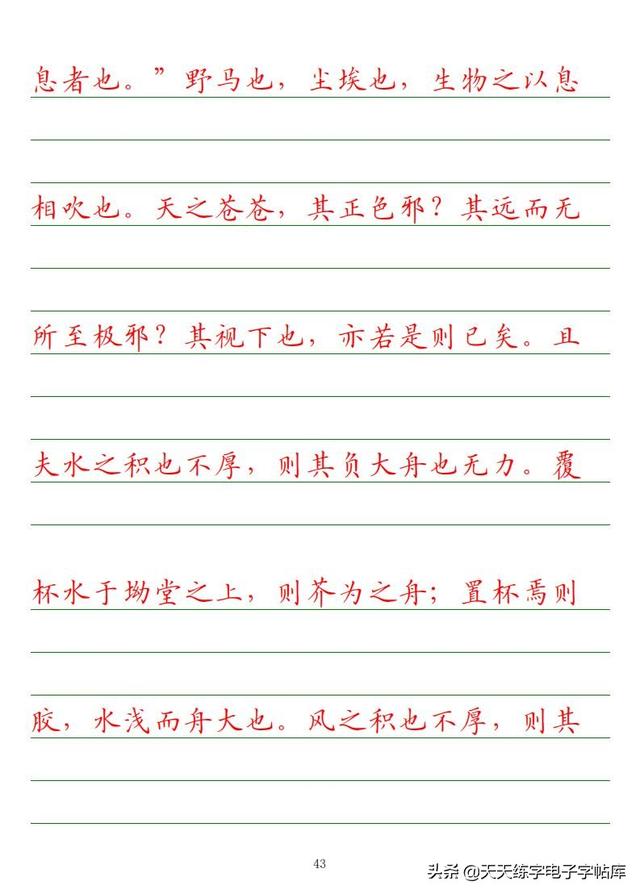 息者也。”野马也，尘埃也，生物之以息
相吹也。天之苍苍，其正色邪？其远而无
所至极邪？其视下也，亦若是则已矣。且
夫水之积也不厚，则其负大舟也无力。覆
杯水于坳堂之上，则芥为之舟；置杯焉则
胶，水浅而舟大也。风之积也不厚，则其
43
头条 @天天练字电子字帖库